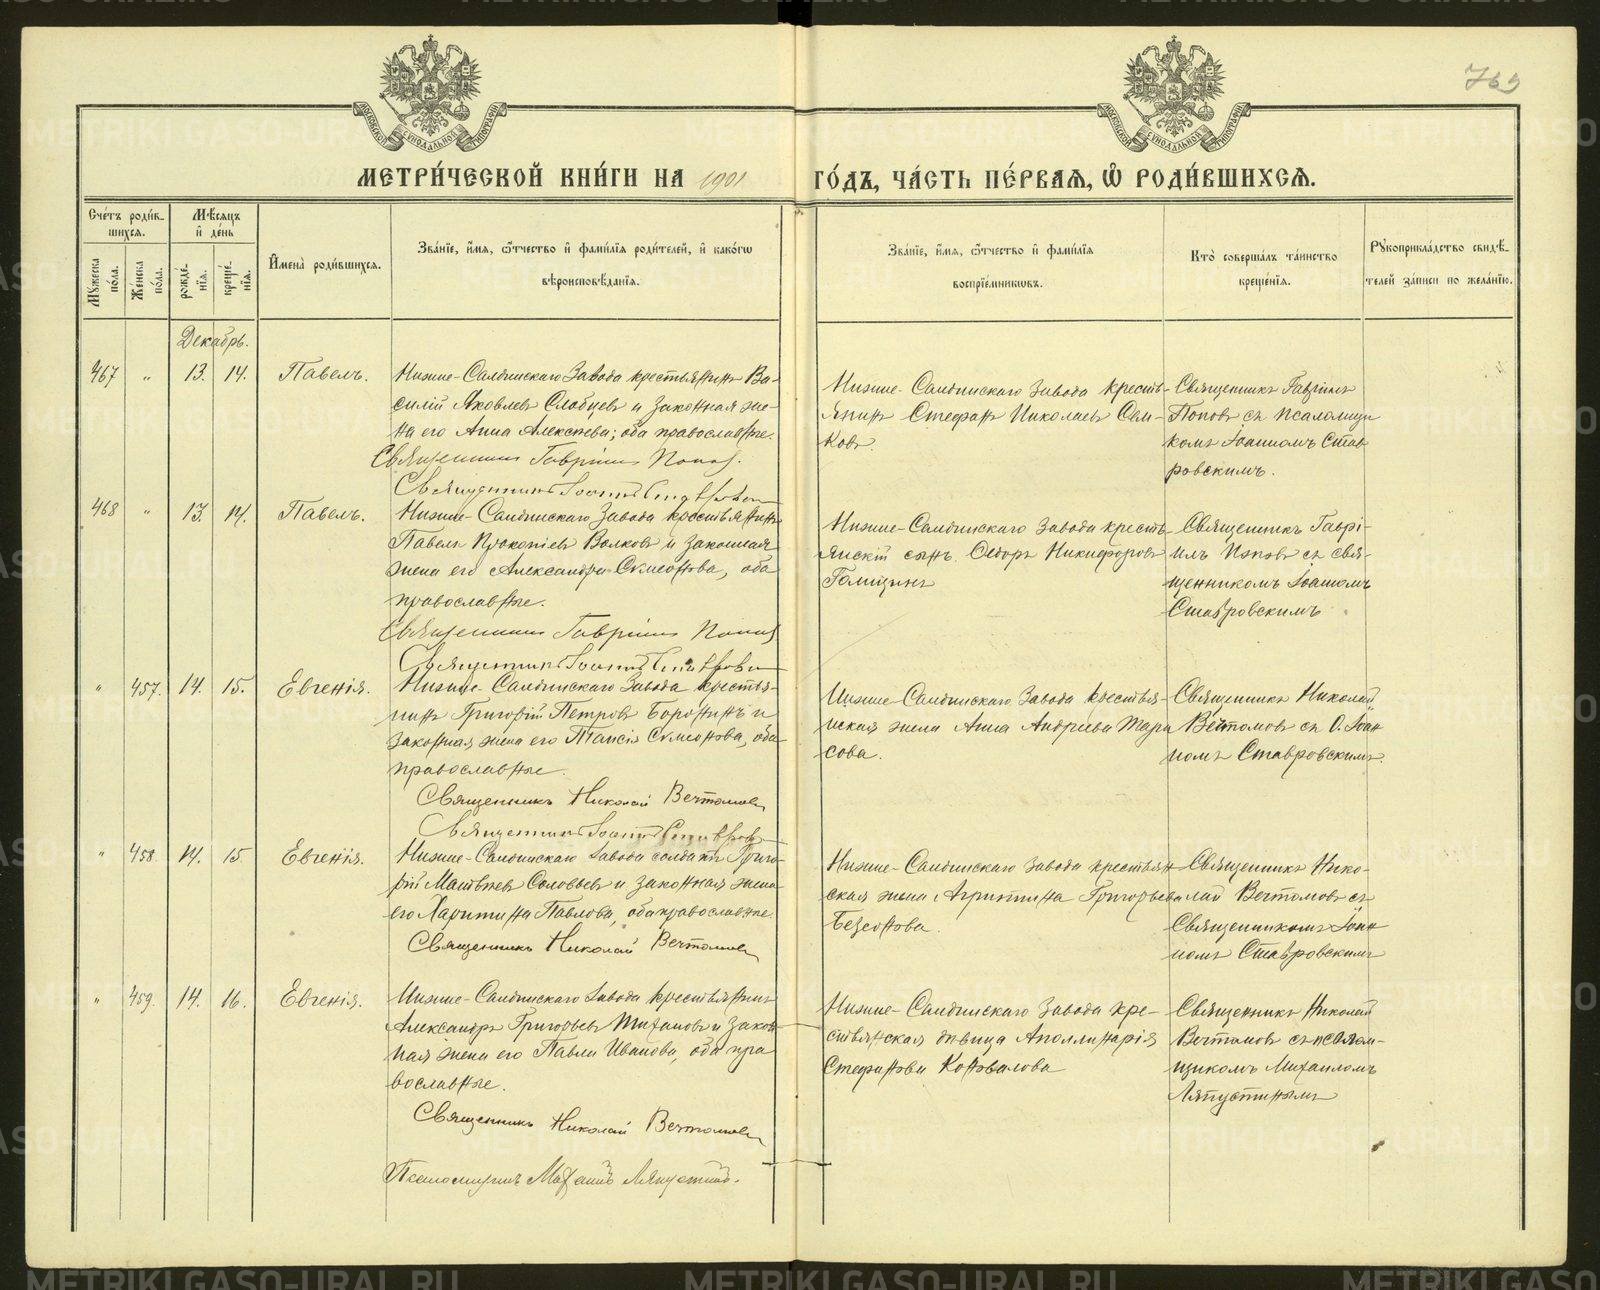 769
МЕТРИ́ЧЕСКОЙ КНИ́ГИ НА 1901 ГО́ДЪ, ЧА́СТЬ ПЕ́РВАЯ, Ѡ҆ РОДИ́ВШИХСЯ.
Сче́тъ роди́в-
шихся.
Мꙋ́жеска по́ла.
Же́нска по́ла.
Мѣ́сяцъ
и҆ де́нь
рожде́-
нїя.
креще́-
нїя.
И҆мена̀ роди́вшихся.
Зва́нїе, и҆́мя, ѻ҆́тчество и҆ фами́лїя роди́телей, и҆ како́гѡ
вѣроисповѣ́данїя.
Зва́нїе, и҆́мя, ѻ҆́тчество и҆ фами́лїя
воспрїе́мникѡвъ.
Кто̀ соверша́лъ та́инство
креще́нїя.
Рꙋкоприкла́дство свидѣ́-
телей за́писи по жела́нїю.
Декабрь.
467 " 13. 14. Павелъ.
Нижне-Салдинскаго Завода крестьянинъ Ва-
силій Яковлевъ Слобцевъ и законная же-
на его Анна Алексѣева; оба православные.
Священникъ Гавріилъ Поповъ.
Священникъ Іоаннъ Ставровскій
Нижне-Салдинскаго Завода кресть-
янинъ Стефанъ Николаевъ Сем-
ковъ.
Священникъ Гавріилъ
Поповъ съ псаломщи
комъ Іоанномъ Став
ровскимъ.
468 " 13. 14. Павелъ.
Нижне-Салдинскаго Завода крестьянинъ
Павелъ Прокопіевъ Волковъ и законная
жена его Александра Симеонова, оба
православные.
Священникъ Гавріилъ Поповъ
Священникъ Іоаннъ Ставровскій
Нижне-Салдинскаго Завода кресть-
янскій сынъ Ѳеодоръ Никифоровъ
Голицынъ
Священникъ Гаврі-
илъ Поповъ съ свя-
щенникомъ Іоанномъ
Ставровскимъ
" 457. 14. 15. Евгенія.
Нижне-Салдинскаго Завода крестья-
нинъ Григорій Петровъ Боронинъ и
законная жена его Таисія Симеонова, оба
православные.
Священникъ Николай Вечтомовъ
Священникъ Іоаннъ Ставровскій
Нижне-Салдинскаго Завода крестья-
нская жена Анна Андреева Тара
сова.
Священникъ Николай
Вечтомовъ съ О. Іоан
номъ Ставровскимъ.
" 458. 14. 15. Евгенія.
Нижне-Салдинскаго Завода солдатъ Григо-
рій Матвѣевъ Соловьевъ и законная жена
его Харитина Павлова, оба православные.
Священникъ Николай Вечтомовъ
Нижне-Салдинскаго Завода крестьян
ская жена Агрипина Григорьева
Безсонова.
Священникъ Нико-
лай Вечтомовъ съ
Священникомъ Іоан
номъ Ставровскимъ
" 459. 14. 16. Евгенія.
Нижне-Салдинскаго Завода крестьянинъ
Александръ Григорьевъ Тихановъ и закон
ная жена его Павла Иванова, оба пра
вославные.
Священникъ Николай Вечтомовъ
Псаломщикъ Михаилъ Ляпустинъ.
Нижне-Салдинскаго Завода кре-
стьянская дѣвица Аполлинарія
Стефанова Коновалова
Священникъ Николай
Вечтомовъ съ псалом-
щикомъ Михаиломъ
Ляпустинымъ
METRIKI.GASO-URAL.RU